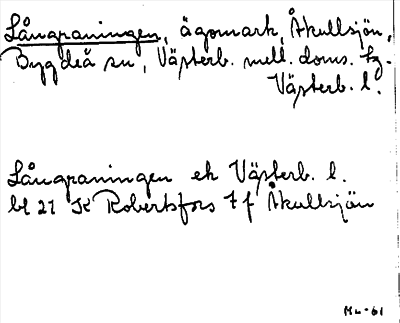 Långraningen, ägomark, Åkullsjön,
Bygdeå sn, Västerb. mell. doms. tg.
Västerb. l.
Långraningen ek Västerb. l.
bl 21 K Robertsfors 7 f Åkullsjön